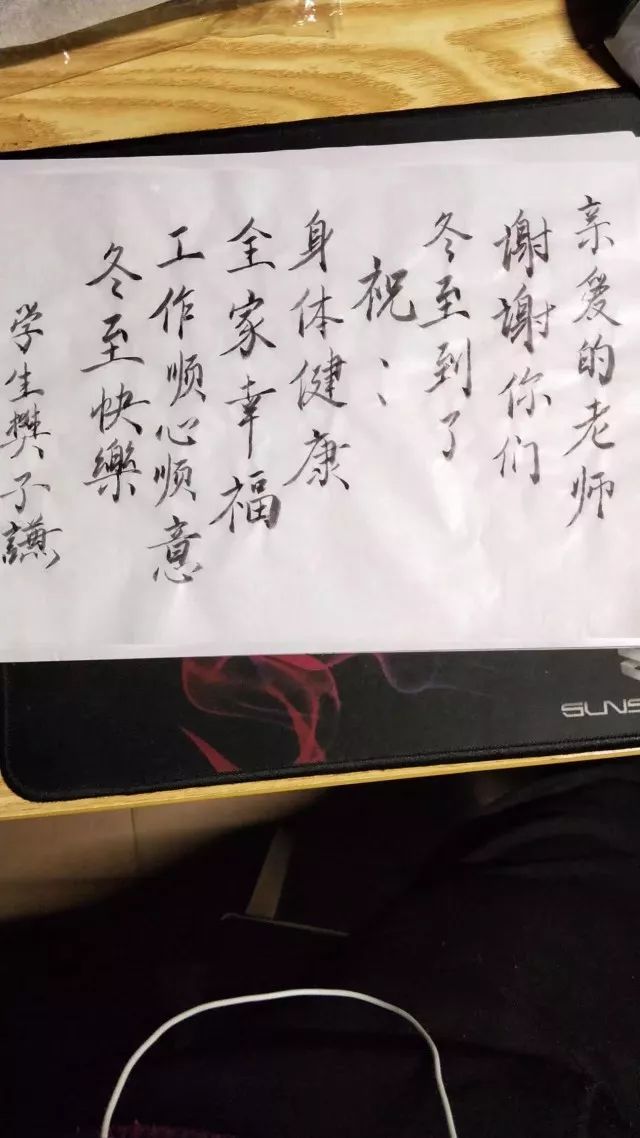 亲爱的老师
谢谢你们
冬至到了
祝：
身体健康
全家幸福
工作顺心顺意
冬至快樂
学生樊子謙
SUNS